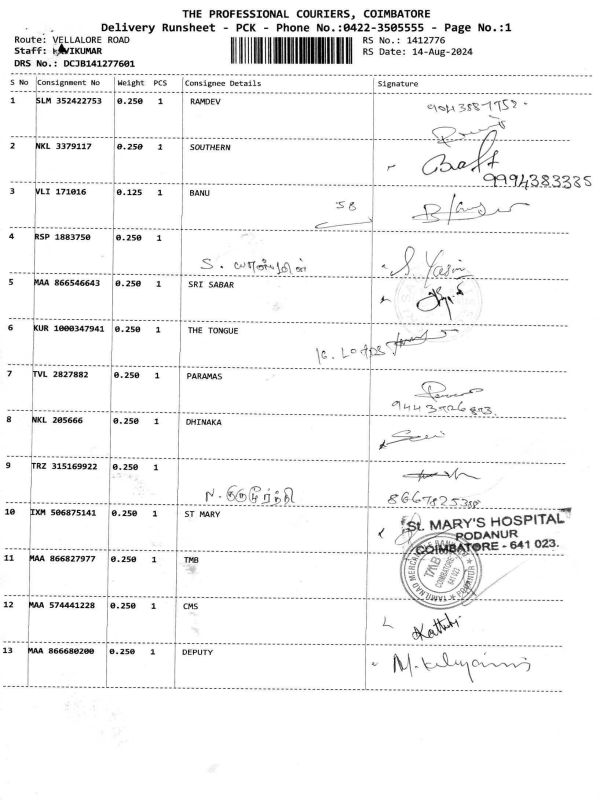 THE PROFESSIONAL COURIERS, COIMBATORE
Delivery Runsheet - PCK - Phone No.:0422-3505555 - Page No.:1
Route: VELLALORE ROAD RS No.: 1412776
Staff: KAVIKUMAR RS Date: 14-Aug-2024
DRS No.: DCJB141277601
S No Consignment No Weight PCS Consignee Details Signature
1 SLM 352422753 0.250 1 RAMDEV
2 NKL 3379117 0.250 1 SOUTHERN
9994383385
3 VLI 171016 0.125 1 BANU
58
4 RSP 1883750 0.250 1
S. Yasin
5 MAA 866546643 0.250 1 SRI SABAR
6 KUR 1000347941 0.250 1 THE TONGUE
7 TVL 2827882 0.250 1 PARAMAS
8 NKL 205666 0.250 1 DHINAKA
9 TRZ 315169922 0.250 1
10 IXM 506875141 0.250 1 ST MARY
St. MARY'S HOSPITAL
PODANUR
COIMBATORE - 641 023.
11 MAA 866827977 0.250 1 TMB
TAMILNAD MERCANTILE BANK LTD
TMB
COIMBATORE
641 023
PODANUR
12 MAA 574441228 0.250 1 CMS
13 MAA 866680200 0.250 1 DEPUTY